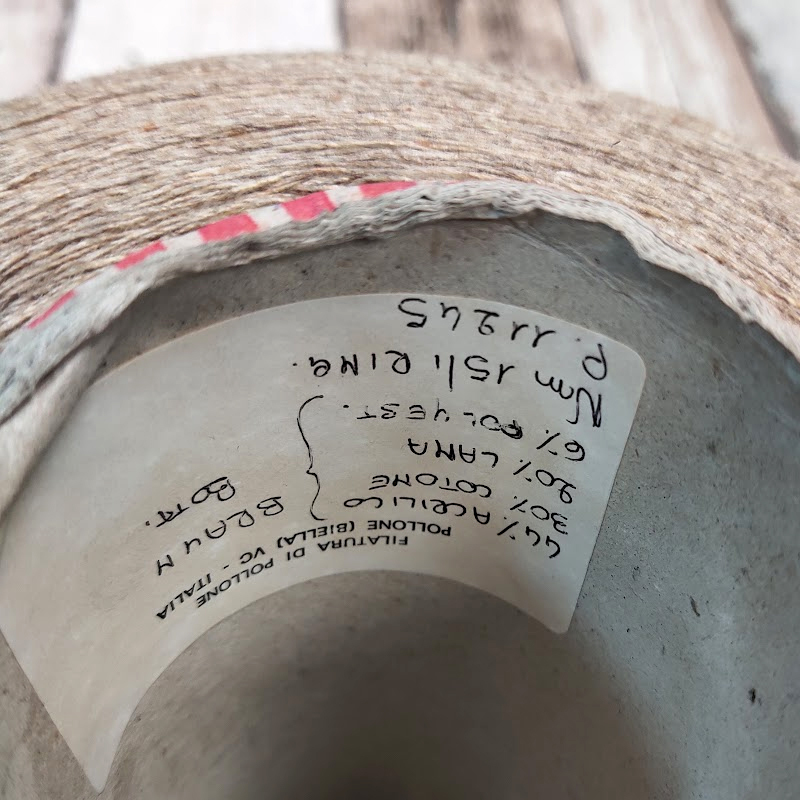 FILATURA DI POLLONE
POLLONE (BIELLA) VC - ITALIA
44% ACRILICO
30% COTONE
20% LANA
6% POLYEST.
BRAUN
Nm 15/1 RING.
P. 11245